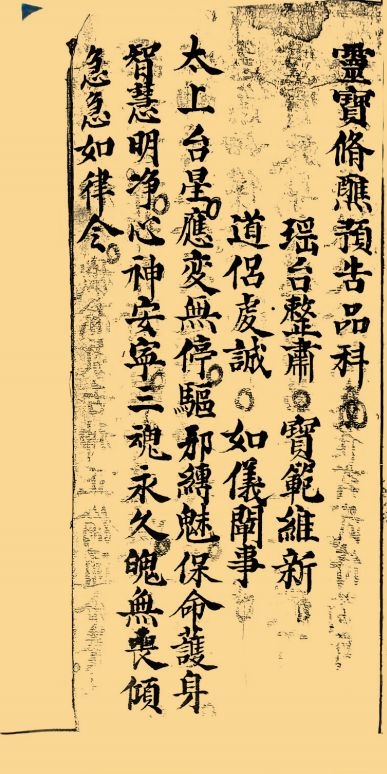 靈寶脩醮預告品科
瑶台整肅 寶範維新
道侶虔誠 如儀闡事
太上台星應変無停驅邪縛魅保命護身
智慧明净心神安寧三魂永久魄無喪傾
急急如律令